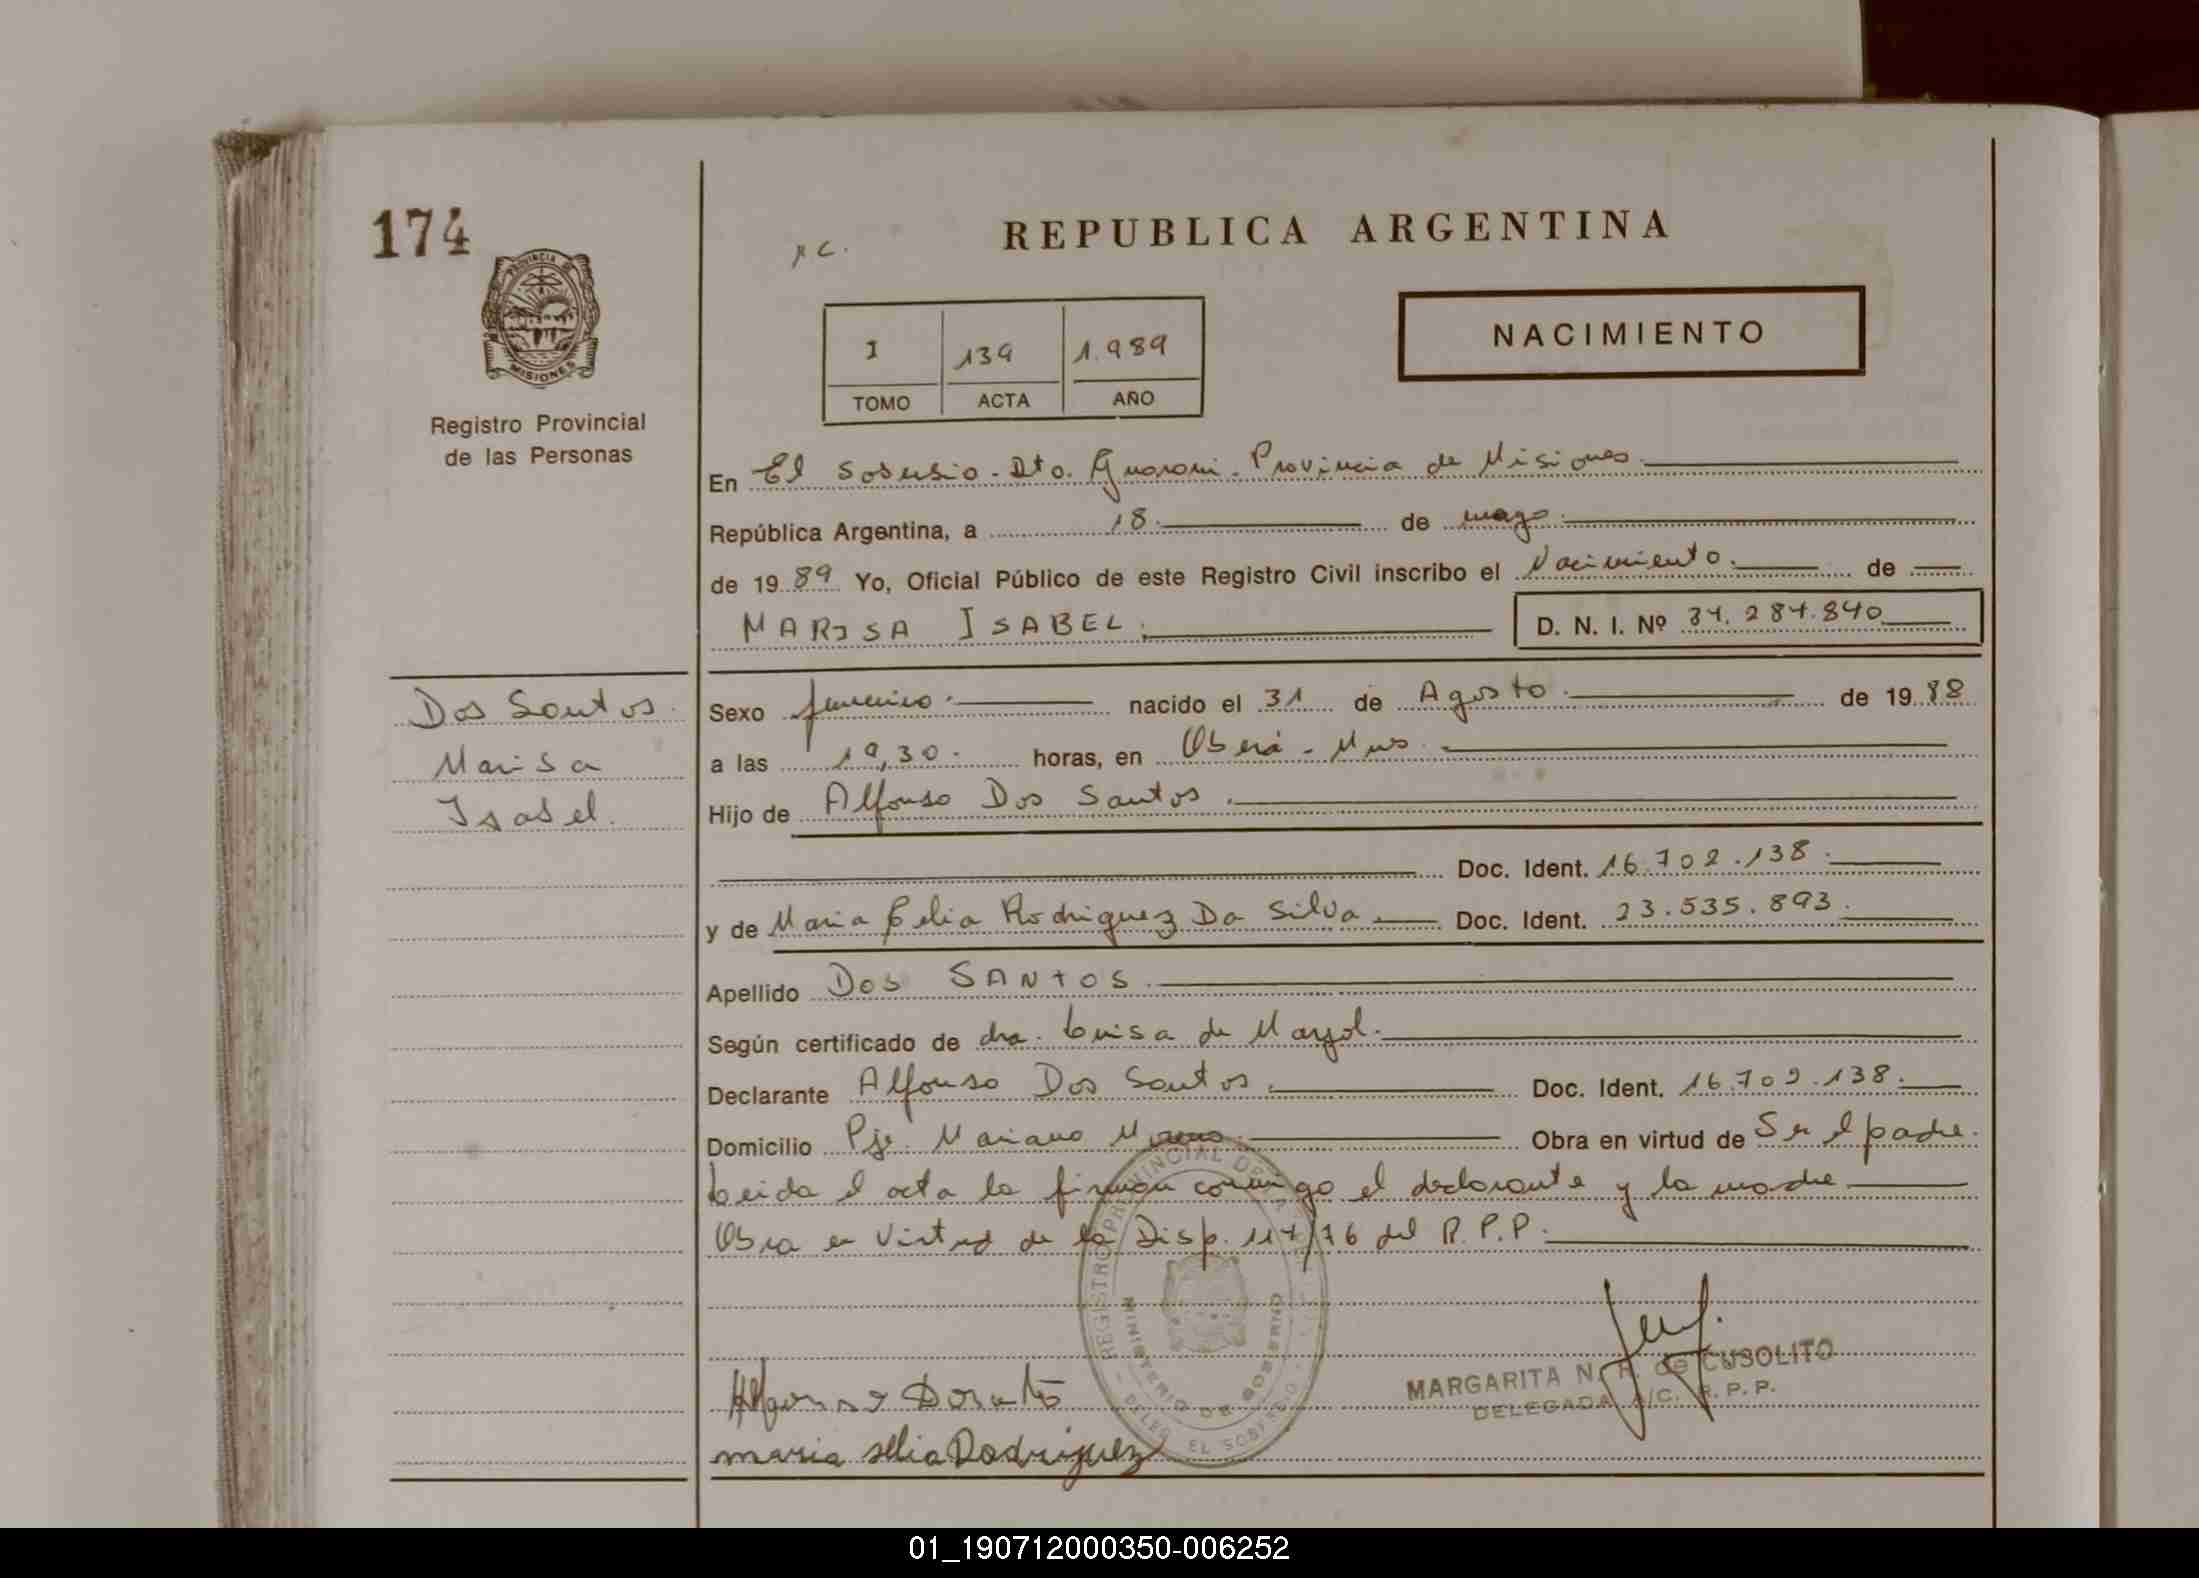 174
REPUBLICA ARGENTINA
PROVINCIA DE
MISIONES
Registro Provincial
de las Personas
NACIMIENTO
I 139 1.989
TOMO ACTA AÑO
En El Soberbio - Dto. Guarani - Provincia de Misiones.
República Argentina, a 18. de mayo.
de 1989 Yo, Oficial Público de este Registro Civil inscribo el Nacimiento. de
MARISA ISABEL. D. N. I. Nº 34.284.840
Dos Santos.
Marisa
Isabel.
Sexo femenino. nacido el 31 de Agosto. de 1988
a las 19,30. horas, en Oberá - Mnes.
Hijo de Alfonso Dos Santos.
Doc. Ident. 16.702.138.
y de Maria Celia Rodriguez Da Silva. Doc. Ident. 23.535.893.
Apellido DOS SANTOS.
Según certificado de dra. Luisa de Mayol.
Declarante Alfonso Dos Santos. Doc. Ident. 16.702.138.
Domicilio Pje. Mariano Moreno. Obra en virtud de Ser el padre.
Leida el acta la firman conmigo el declarante y la madre
Obra en Virtud de la Disp. 117/76 del R.P.P.
REGISTRO PROVINCIAL DE LAS
MINISTERIO DE GOBIERNO
DELEG. EL SOBERBIO
MARGARITA N. R. de CUSOLITO
DELEGADA A/C. R. P. P.
Alfonso Dosanto
maria selia Rodriguez
01_190712000350-006252